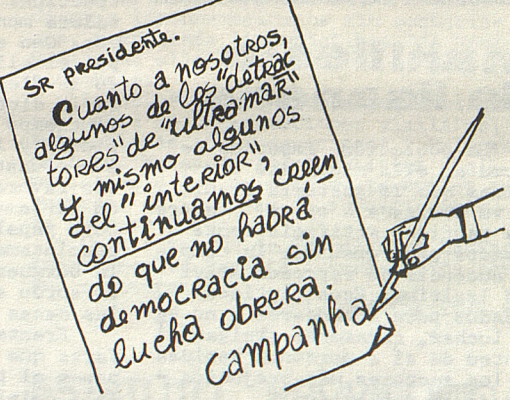 SR presidente.
Cuanto a nosotros,
algunos de los "detrac
tores" de "ultramar"
y mismo algunos
del "interior",
continuamos creen
do que no habrá
democracia sin
lucha obrera.
Campanha